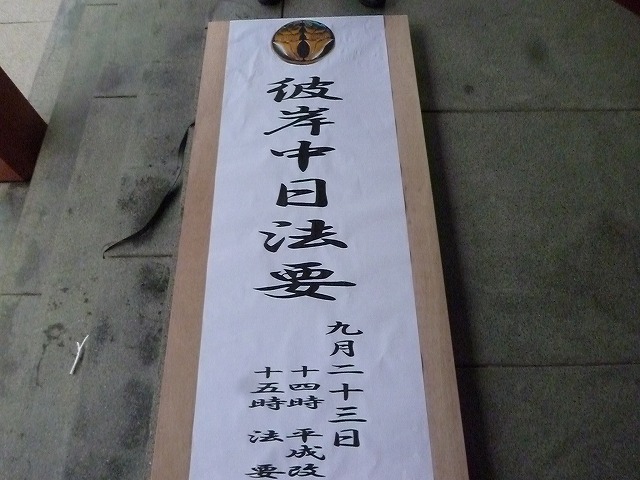 彼岸中日法要
九月二十三日
十四時 平成改
十五時 法要